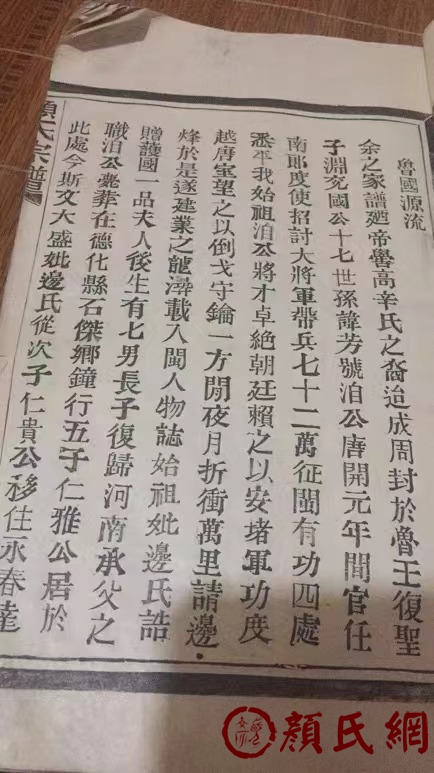 魯國源流
余之家譜廼帝嚳高辛氏之裔迨成周封於魯王復聖
子淵兖國公十七世孫諱芳號洎公唐開元年間官任
南郎度使招討大將軍帶兵七十二萬征閩有功四處
悉平我始祖洎公將才卓絶朝廷賴之以安堵軍功度
越唐室望之以倒戈守鑰一方閒夜月折衝萬里請邊
烽於是遂建業之龍潯載入閩人物誌始祖妣邊氏誥
贈護國一品夫人後生有七男長子復歸河南承父之
職洎公薨葬在德化縣石傑鄉鐘行五子仁雅公居於
此處今斯文大盛妣邊氏從次子仁貴公移住永春達
顏氏宗譜
顏氏網